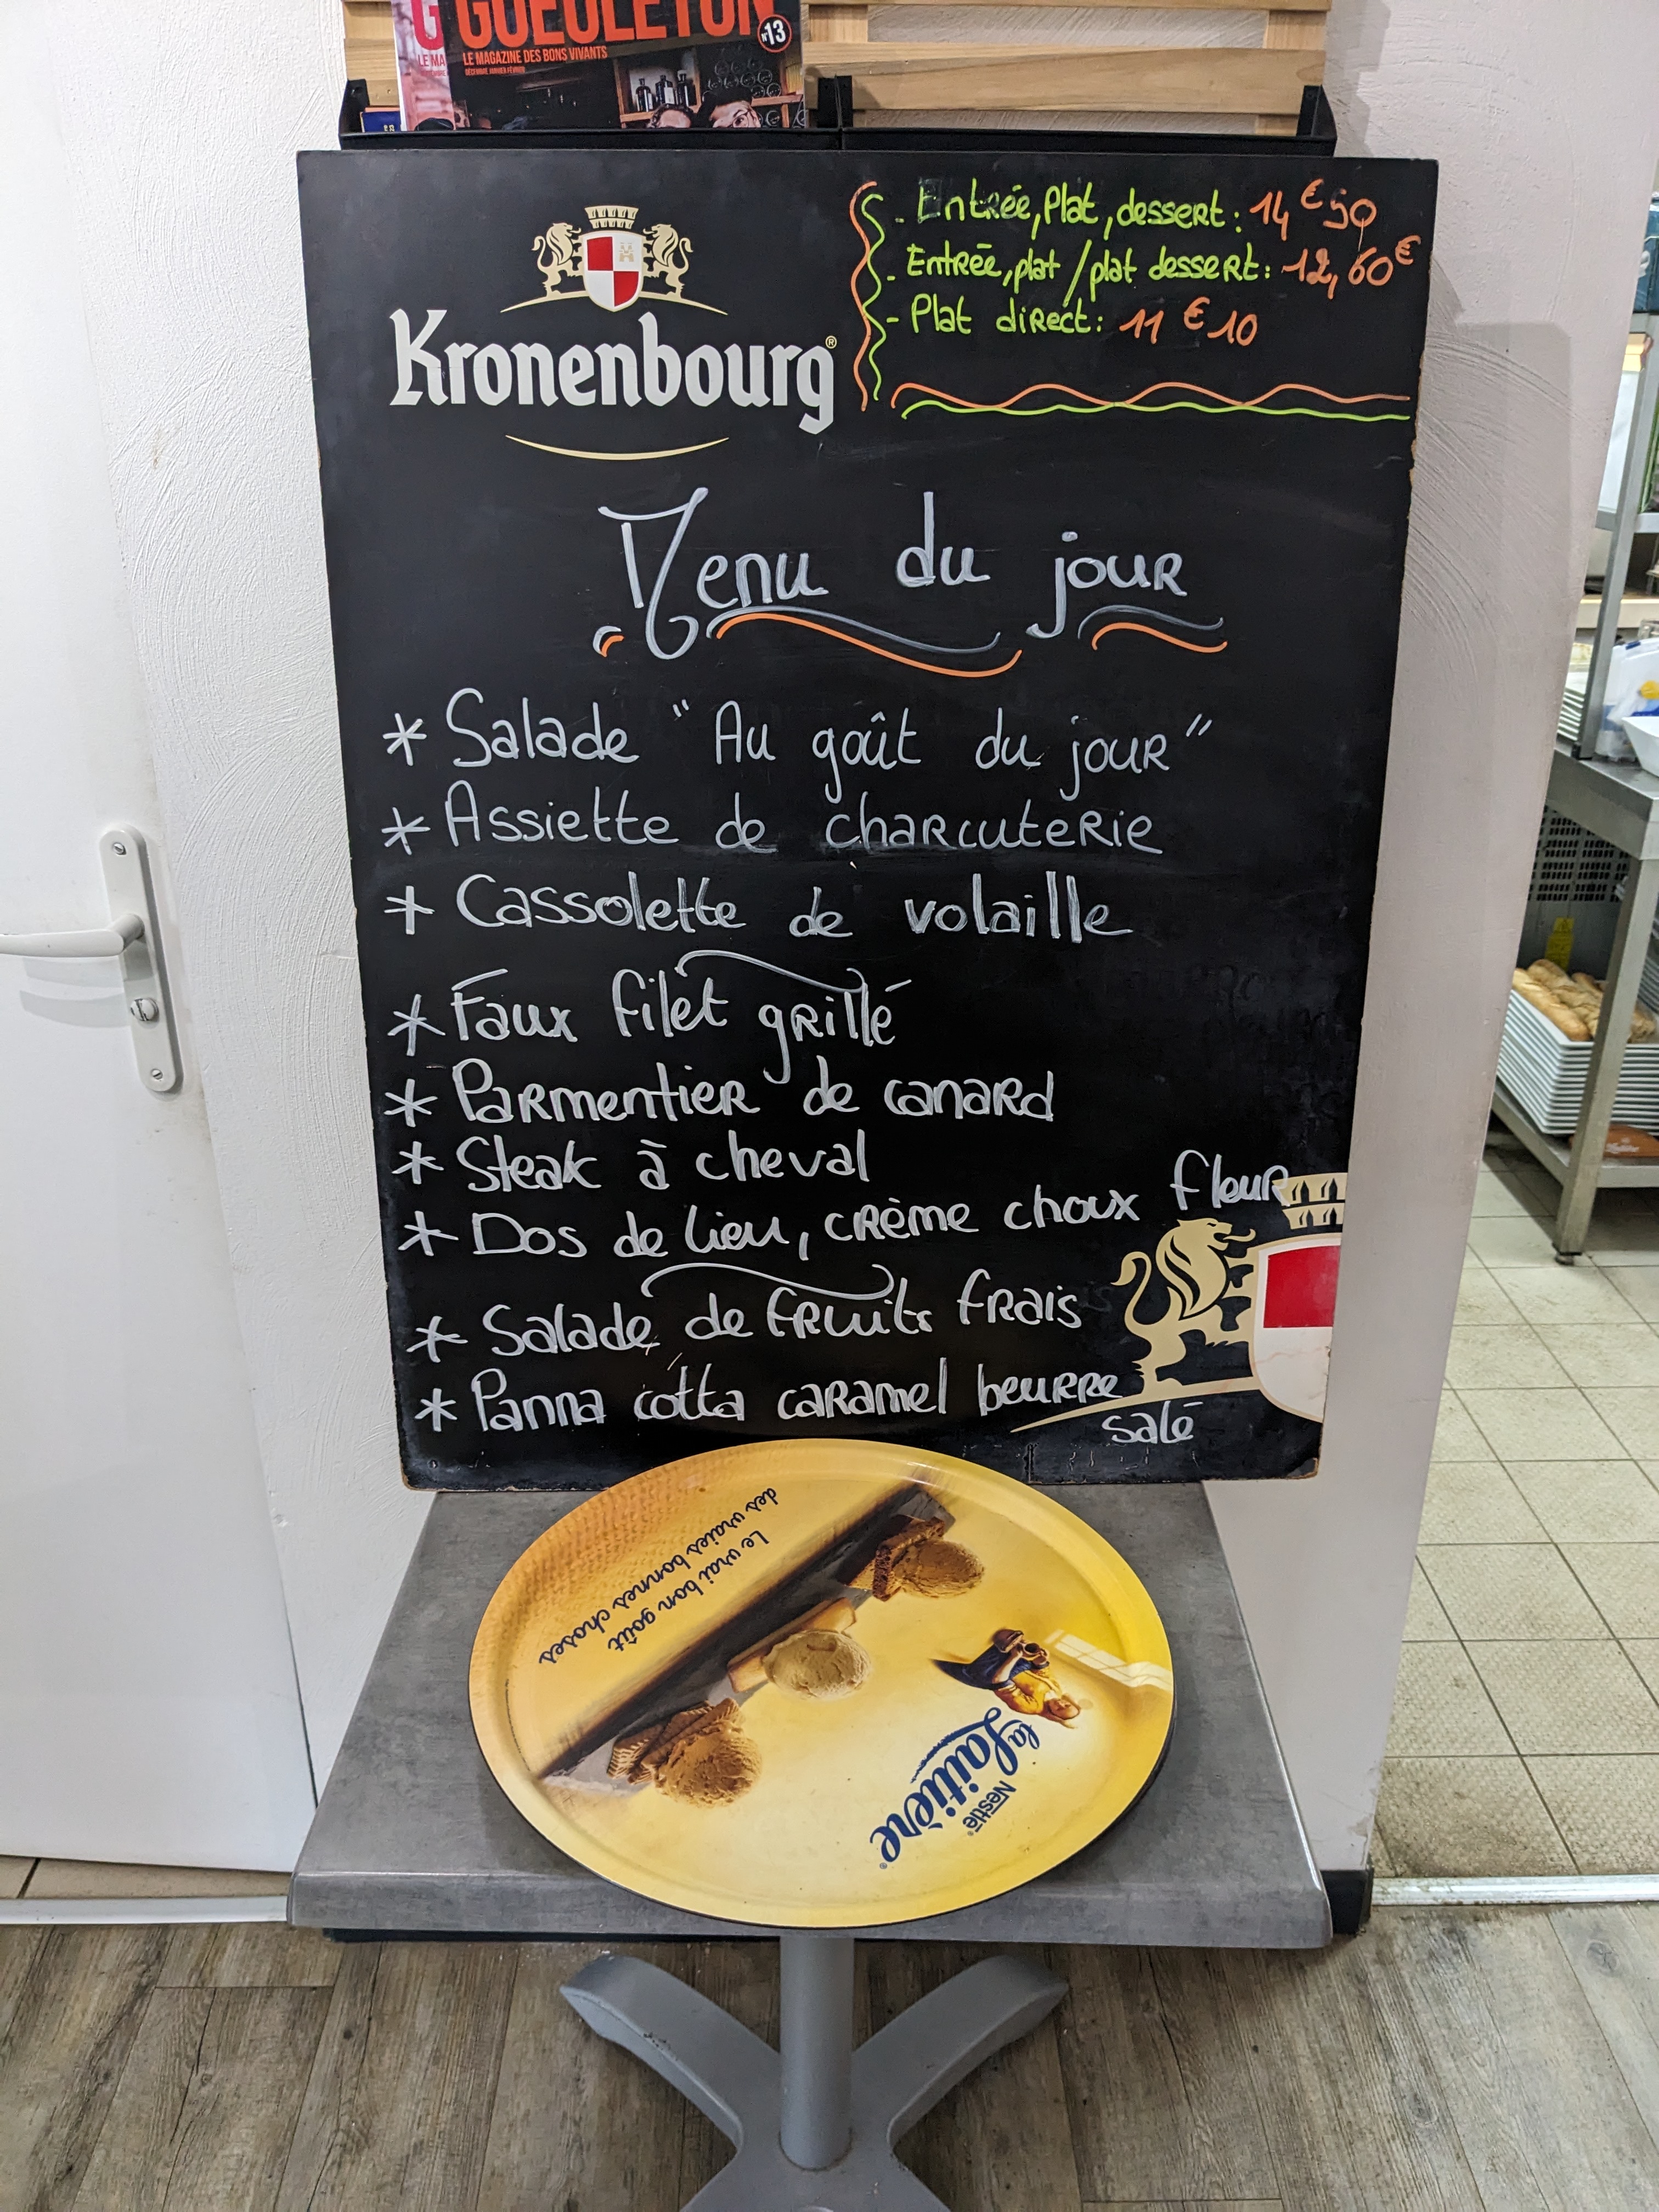 GUEULETON
N°13
LE MAGAZINE DES BONS VIVANTS
DÉCEMBRE JANVIER FÉVRIER
G
LE MA
Kronenbourg®
- Entrée, Plat, dessert : 14 € 50
- Entrée, plat / plat dessert : 12,60 €
- Plat direct : 11 € 10
Menu du jour
* Salade " Au goût du jour "
* Assiette de charcuterie
* Cassolette de volaille
* Faux filet grillé
* Parmentier de canard
* Steak à cheval
* Dos de lieu, crème choux fleur
* Salade de fruits frais
* Panna cotta caramel beurre
salé
Le vrai bon goût
des vraies bonnes choses
Nestlé®
la Laitière®